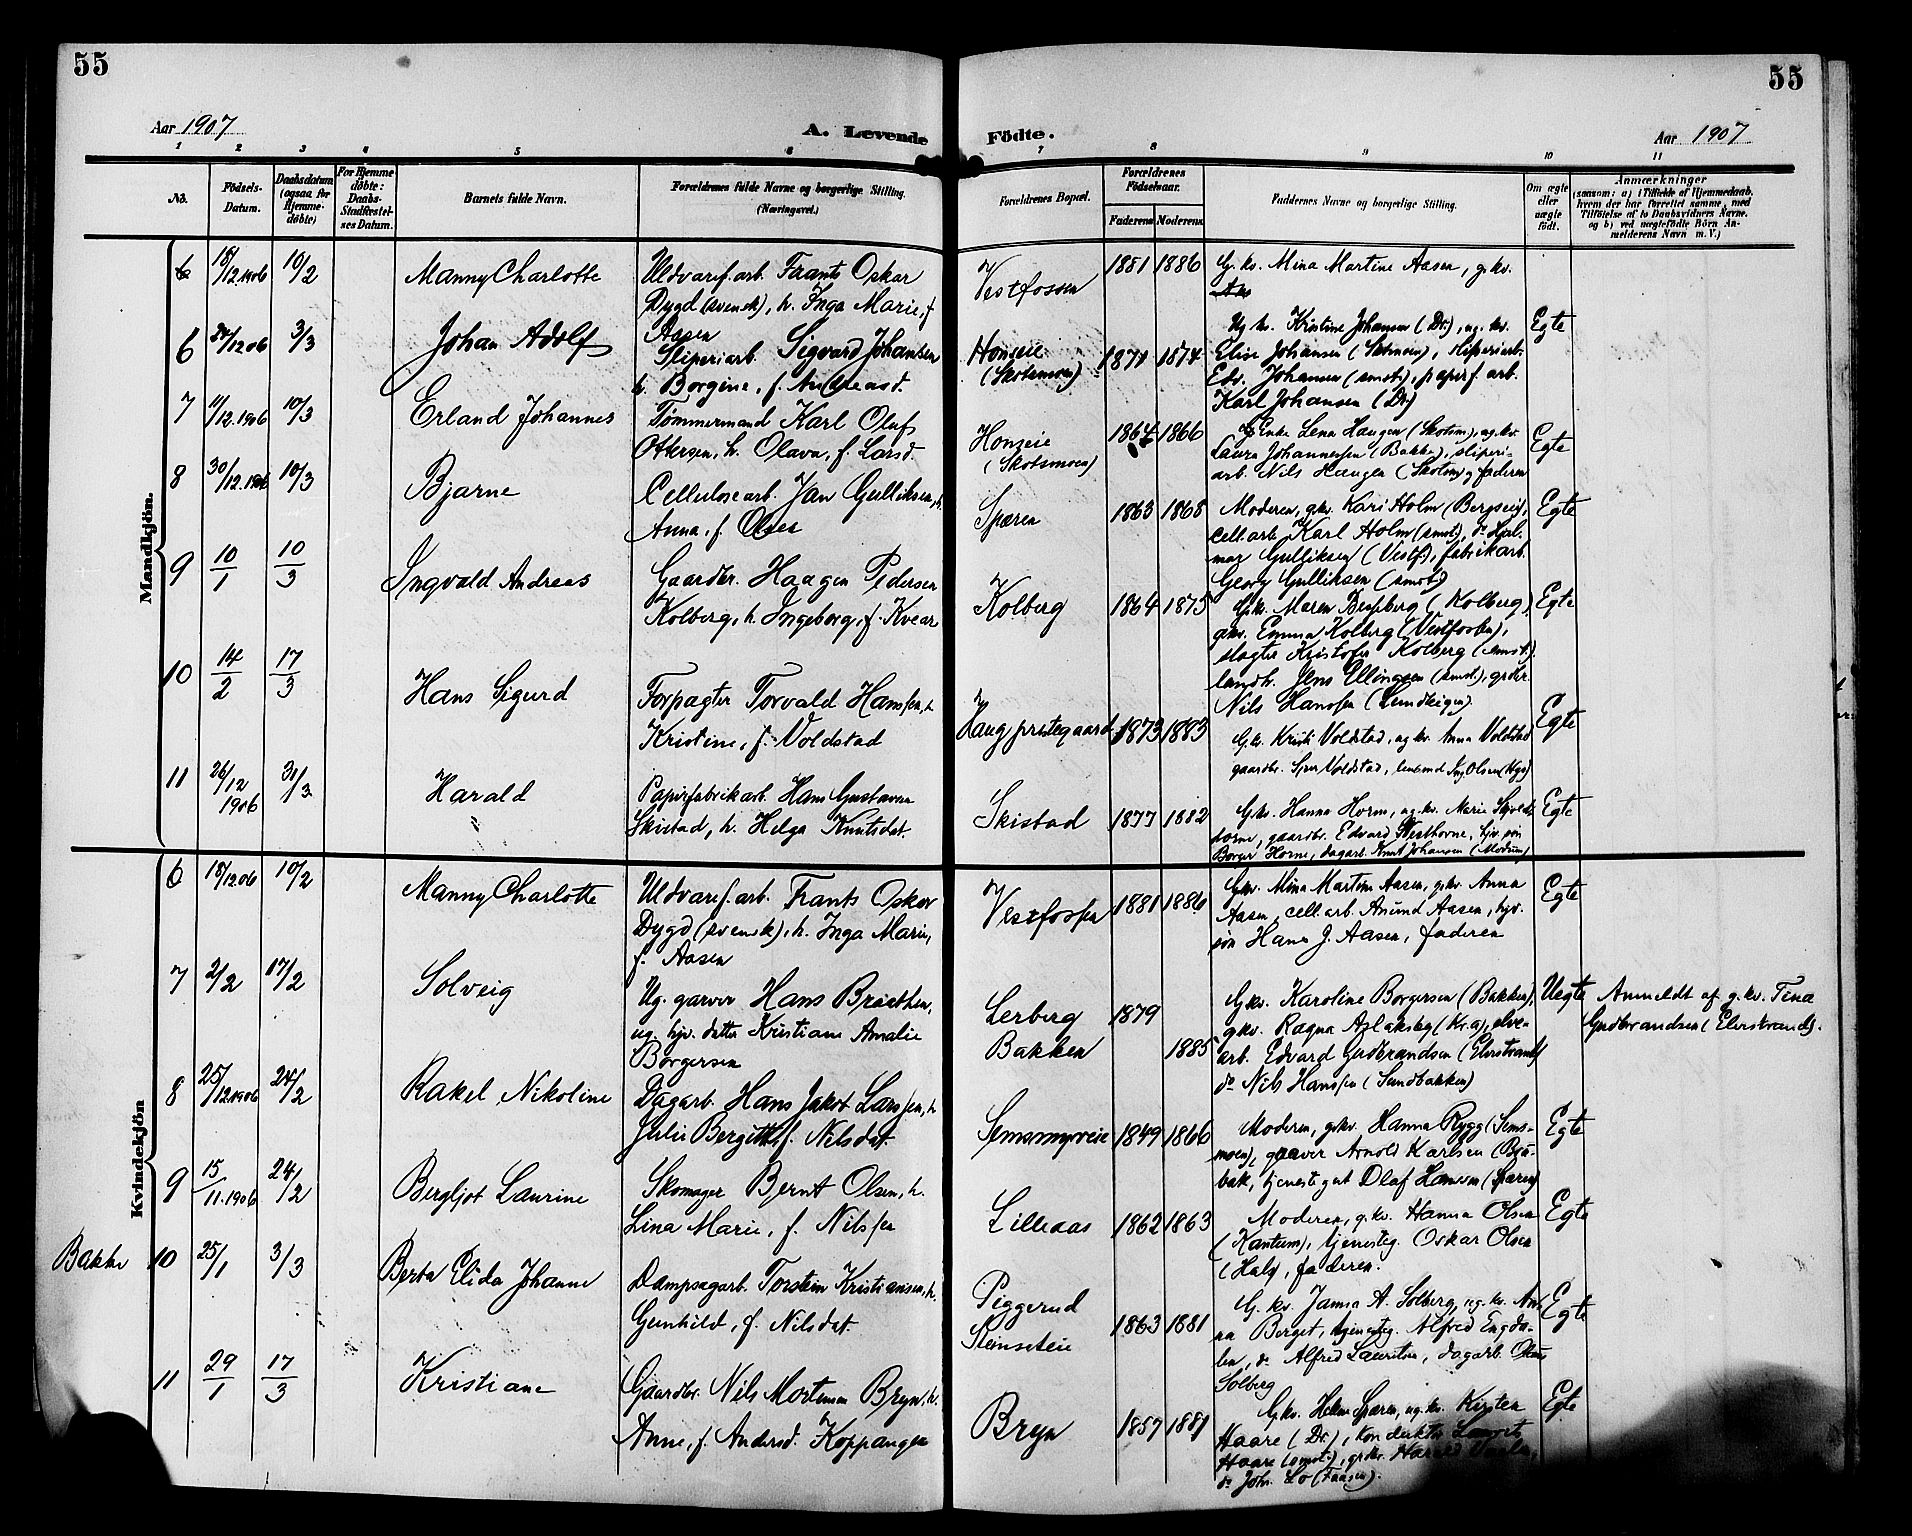 55
55
Aar 1907
A. Levende
Födte.
Aar 1907
1 2 3 4 5 6 7 8 9 10 11
No.
Födsels-Datum.
Daabsdatum (ogsaa for Hjemmedöbte)
For Hjemmedöbte: Daabs-Stadfæstelses Datum.
Barnets fulde Navn.
Forældrenes fulde Navne og borgerlige Stilling. (Næringsvei.)
Forældrenes Bopæl.
Forældrenes Födselsaar.
Faderens
Moderens
Faddernes Navne og borgerlige Stilling.
Om ægte eller uægte födt.
Anmærkninger
(saasom: a) i Tilfælde af Hjemmedaab, hvem der har forrettet samme, med Tilföielse af to Daabsvidners Navne. og b) ved uægtefödte Börn Anmelderens Navn m. V.)
Mandkjön.
6 18/12.1906 10/2 Manny Charlotte
Uldvaref.arb. Frants Oskar
Dygd (svensk), h. Inga Marie, f.
Aasen
Vestfossen 1881 1886
G. kv. Mina Martine Aasen, g.kv.
6 31/12 06 3/3 Johan Adolf
Sliperiarb. Sigvard Johansen
h. Borgine, f. Andreasd.
Honseie
(Skotsmoen) 1871 1874
Ug kv. Kristine Johansen (Dr.), ug. kv.
Elise Johansen (Skotsmoen), sliperiarb.
Edv. Johansen (smst.), papirf. arb.
Karl Johansen (Dr.)
Egte
7 11/12.1906 10/3 Erland Johannes
Tømmermand Karl Oluf
Ottersen, h. Olava, f. Larsd.
Honseie
(Skotsmoen) 1864 1866
Enke Lena Haugen (Skotsm), ug. kv.
Laura Johannesen (Bakke), sliperi-
arb. Nils Haugen (Skotsm) g faderen
Egte
8 30/12.1906 10/3 Bjarne
Cellulosearb. Jan Gulliksen, h.
Anna, f. Olsen
Spæren 1863 1868
Moderen, gkv. Kari Holm (Bergseie),
cell. arb. Karl Holm (smst), do Hjal-
mar Gulliksen (Vestf.), fabrikarb.
Georg Gulliksen (smst)
Egte
9 10/1 10/3 Ingvald Andreas
Gaardbr. Haagen Pedersen
Kolberg, h. Ingeborg, f. Kveær
Kolberg 1864 1875
G.kv. Maren (Kolberg),
gkv. Emma Kolberg (Vestfossen),
slagter Kristofer Kolberg (smst.)
landh. Jens Ellingsen (smst), grdbr.
Nils Hanssen
Egte
10 14/2 17/3 Hans Sigurd
Forpagter Torvald Hanssen, h.
Kristine, f. Voldstad
Haug prestegaard 1873 1883
G.kv. Voldstad, ug kv. Anna Voldstad
gaardbr. Voldstad, Olsen
Egte
11 26/12 1906 31/3 Harald
Papirfabrikarb. Hans Gustavsen
Skistad, h. Helga Knutsdat.
Skistad 1877 1882
G.kv. Hanna Horne, ug. kv. Marie
gaardbr. Edvard Vesthorne, hjv. søn
Borger Horne, dagarb. Knut Johansen (Modum)
Egte
Kvindekjön
6 18/12 06 10/2 Manny Charlotte
Uldvaref. arb. Frants Oskar
Dygd (svensk), h. Inga Marie,
f. Aasen
Vestfossen 1881 1886
Gkv. Mina Martine Aasen, g.kv. Anna
Aasen, cell. arb. Anund Aasen, hjv.
søn Hans J. Aasen, faderen
Egte
7 2/2 17/2 Solveig
Ug. garver Hans Braathen,
ug. hjv. datter Kristiane Amalie
Borgersen
Lerberg 1879
Bakken 1885
Gkv. Karoline Borgersen (Bakken),
gkv. Ragna Aslaksby (Kr.a), elve-
arb. Edvard Gudbrandsen (Elverstrand)
do Nils Hanssen (Sundbakken)
Uegte
Anmeldt af g.kv. Tina
Gudbrandsen (Elvestrand).
8 25/12.1906 24/2 Rakel Nikoline
Dagarb. Hans Jakob Larssen, h.
Julie Bergitte f. Nilsdat.
Semsmyreie 1849 1866
Moderen, g.kv. Hanna Rygg (Sems-
moen), garver Arnold Karlsen
tjenestegut Olaf Hanssen (Spæren)
Egte
9 15/11.1906 24/2 Bergljot Laurine
Skomager Bernt Olsen, h.
Lina Marie, f. Nilssen
Lilleaas 1862 1863
Moderen, g.kv. Hanna Olsen
(Kantum), tjenesteg. Oskar Olsen
faderen.
Egte
Bakke 10 25/1 3/3 Berta Elida Johanne
Dampsagarb. Torstein Kristiansen, h.
Gunhild, f. Nilsdat.
Piggerud
Stenseteie 1863 1881
G. kv. Janna A. Solberg, ug. kv. An-
na Berget, tjenesteg. Alfred Engda-
len, do Alfred Lauritsen, dagarb.
Solberg
Egte
11 29/1 17/3 Kristiane
Gaardbr. Nils Mortensen Bryn, h.
Anne, f. Andersd. Koppangen
Bryn 1857 1881
Gkv. Helene Spæren, ug. kv. Kirsten
Haare (Dr.), konduktør Laurits
Haare (smst), grdbr. Harald
do Joh. Lo (Faasen).
Egte